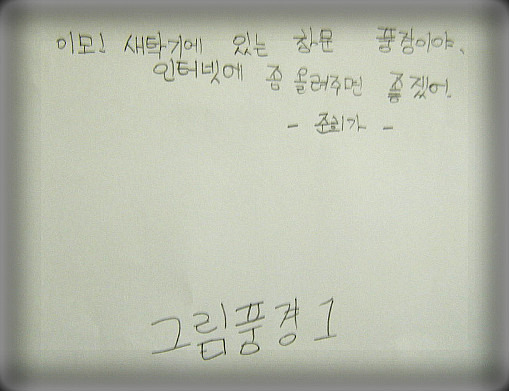 이모! 새탁기에 있는 창문 풍경이야.
인터넷에 좀 올려주면 좋겠어.
- 준희가 -
그림풍경1